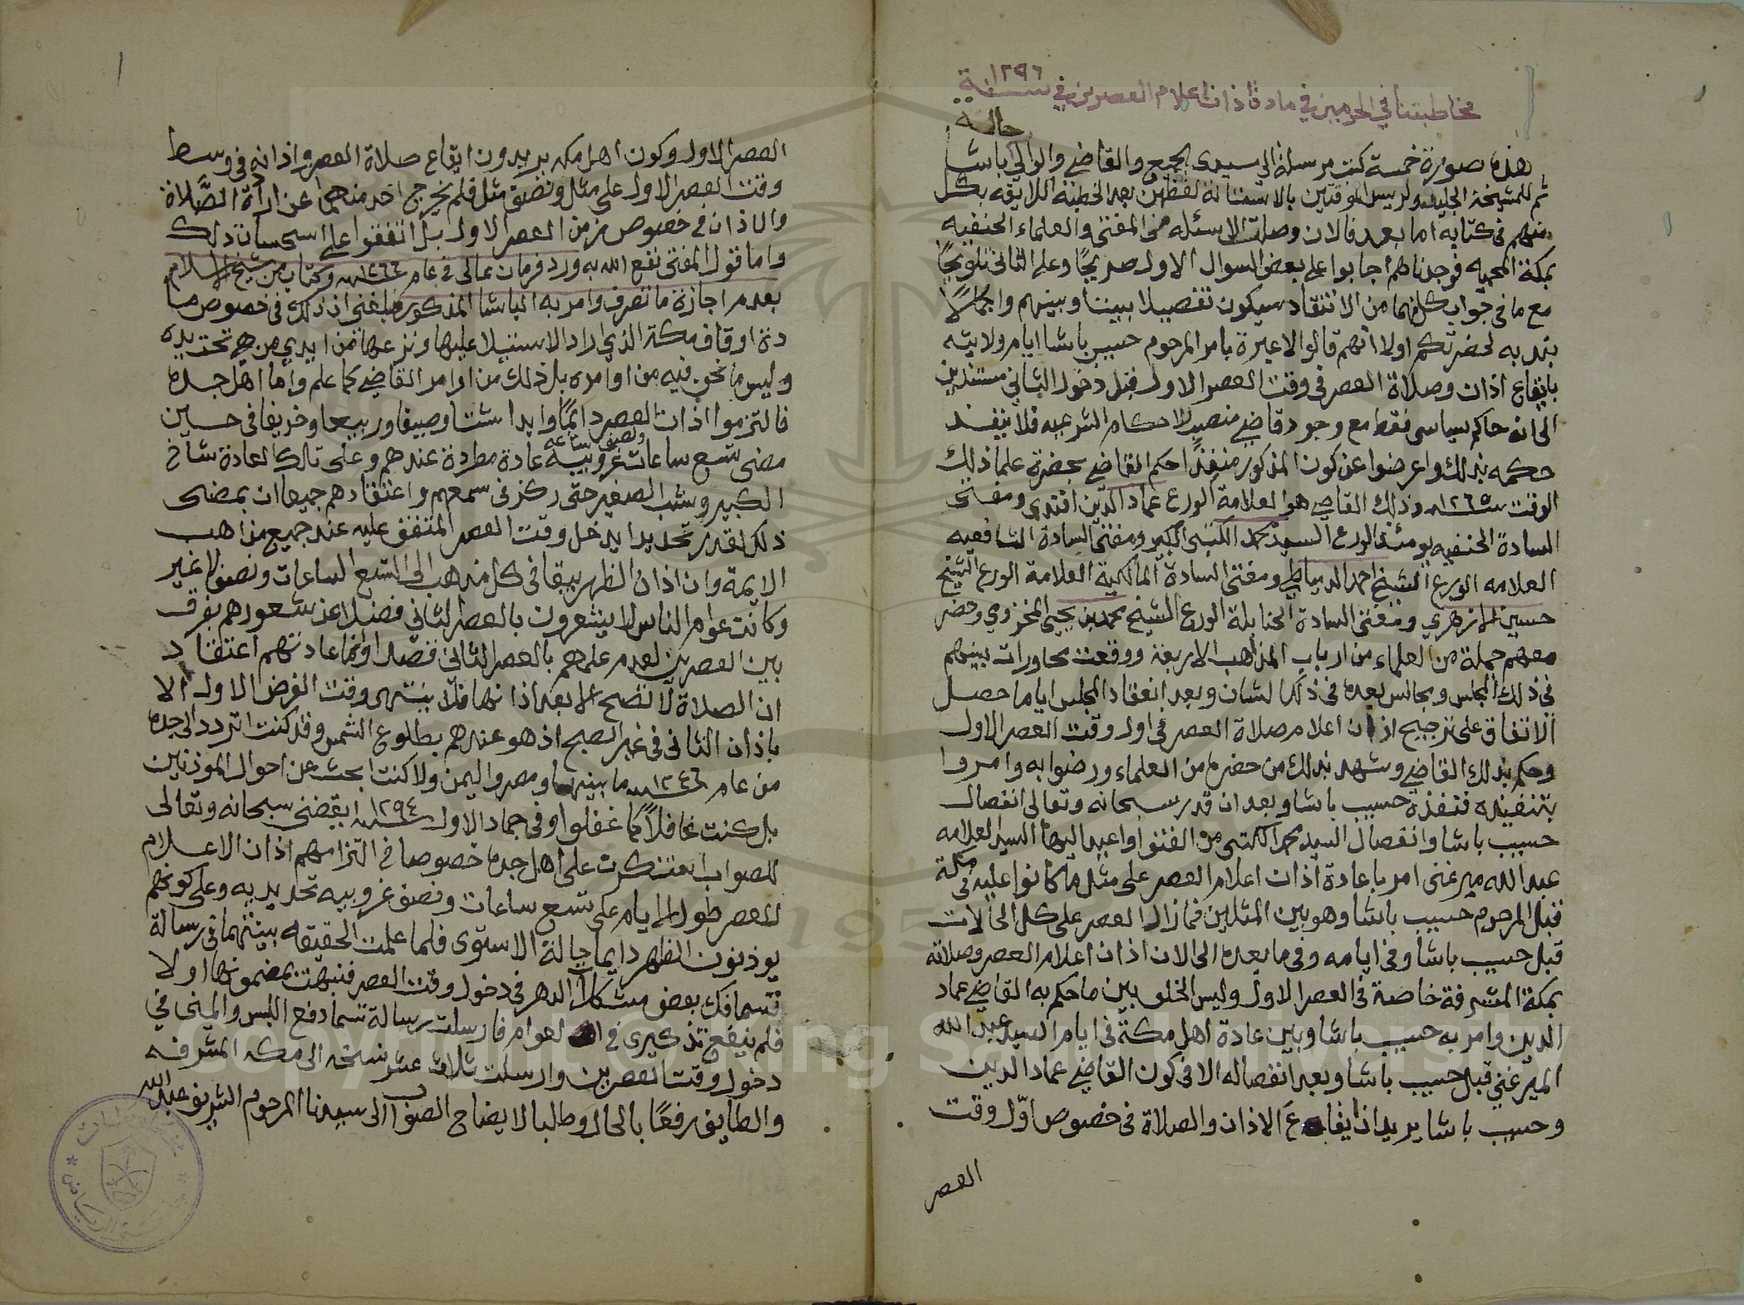 مخاطبتنا في الحرمين في مادة اذان اعلام العصرين في سنة ١٢٩٦
حالية
هذه صورة خمسة كتب مرسلة الى سيدي الجميع والقاضي والوالي باشا
ثم للمشيخة الجليله ولرييس الموقتين بالاستانه لفظهن بعد الخطبه اللايقه بكل
منهم في كتابه اما بعد فالان وصلت الاسئله من المفتي والعلماء الحنفيه
بمكة المحميه فوجدناهم اجابوا على بعض السوال الاول صريحًا وعلى الثاني تلويحًا
مع ما في جواب كل منهما من الانتقاد سيكون تفصيلا بيننا وبينهم واجمالًا
نبديه لحضرتكم اولا انهم قالوا لا عبرة بامر المرحوم حسيب باشا ايام ولايته
بايقاع اذان وصلاة العصر في وقت العصر الاول قبل دخول الثاني مستندين
الى انه حاكم سياسي فقط مع وجود قاضي منصب للاحكام الشرعيه فلا ينفذ
حكمه بذلك واعرضوا عن كون المذكور منفذًا حكم القاضي بحضرة علما ذلك
الوقت سنة ١٢٦٥ وذلك القاضي هو العلامة الورع عماد الدين افندي ومفتي
السادة الحنفيه يومئذ الورع السيد محمد الكتبي الكبير ومفتي السادة الشافعيه
العلامه الورع الشيخ احمد الدمياطي ومفتي السادة المالكية العلامة الورع الشيخ
حسين الازهري ومفتي السادة الحنابلة الورع الشيخ محمد بن يحيى المخزوي وحضر
معهم جملة من العلماء من ارباب المذاهب الاربعة ووقعت محاورات بينهم
في ذلك المجلس ومجالس بعده في ذلك الشان وبعد انعقاد المجلس اياما حصل
الاتفاق على ترجيح اذان اعلام صلاة العصر في اول وقت العصر الاول
وحكم بذلك القاضي وشهد بذلك من حضره من العلماء ورضوا به وامروا
بتنفيذه فنفذه حسيب باشا وبعد ان قدر سبحانه وتعالى انفصال
حسيب باشا وانفصال السيد محمد الكتبي من الفتوا واعيد اليها السيد العلامه
عبد الله ميرغني امر باعادة اذان اعلام العصر على مثل ما كانوا عليه في مكة
قبل المرحوم حسيب باشا وهو بين المثلين فما زال العصر على كل الحالات
قبل حسيب باشا وفي ايامه وفي ما بعده الى الان اذان اعلام العصر وصلاته
بمكة المشرفة خاصة في العصر الاول وليس الخلو بين ما حكم به القاضي عماد
الدين وامر به حسيب باشا وبين عادة اهل مكة في ايام السيد عبد الله
الميرغني قبل حسيب باشا وبعد انفصاله الا في كون القاضي عماد الدين
وحسيب باشا يريدان ايقاع الاذان والصلاة في خصوص اوّل وقت
العصر
العصر الاول وكون اهل مكه يريدون ايقاع صلاة العصر واذانه في وسط
وقت العصر الاول على مثل ونصف مثل فلم يخرج احد منهما عن ارادة الصَّلاة
والاذان في خصوص زمن العصر الاول بل اتفقوا على استحسان ذلك
واما قول المفتي نفع الله به ورد فرمان عالي في عام ١٢٦٦ سنه وكتاب من شيخ الاسلام
بعدم اجازة ما تصرف وامر به الباشا المذكور فبلغني ان ذلك في خصوص ما
دة اوقاف مكة الذي اراد الاستيلا عليها ونزعها من ايدي من هي تحت يده
وليس ما نحن فيه من اوامره بل ذلك من اوامر القاضي كما علم واما اهل جده
فالتزموا اذان العصر دائمًا وابدا شتا وصيفا وربيعا وخريفا في حين
مضي تسع ساعات ونصف ساعه غروبيه عادة مطردة عندهم وعلى تلك العادة شاخ
الكبير وشب الصغير حتى ركز في سمعهم واعتقادهم جميعا ان بمضي
ذلك القدر تحديدا يدخل وقت العصر المتفق عليه عند جميع مذاهب
الايمة وان اذان الظهر يبقا في كل مذهب الى التسع الساعات ونصف لا غير
وكانت عوام الناس لا يشعرون بالعصر الثاني فضلا عن شعورهم بفرق
بين العصرين لعدم علمهم بالعصر الثاني فضلا وانما عادتهم اعتقاد
ان الصلاة لا تصح الا بعد اذانها فلا ينتهى وقت الفرض الاول الا
باذان الثاني في غير الصبح اذ هو عندهم بطلوع الشمس وقد كنت اتردد الى جده
من عام ١٢٤٦ سنه ما بينها ومصر واليمن ولا كنت ابحث عن احوال الموذنين
بل كنت غافلاً كما غفلوا وفي جماد الاول سنه ١٢٩٤ ايقضني سبحانه وتعالى
للصواب فتنكرت على اهل جده خصوصا في التزامهم اذان الاعلام
للعصر طول الايام على تسع ساعات ونصف غروبيه تحديديه وعلى كونهم
يوذنون الظهر دايما حالة الاستوى فلما علمت الحقيقه بينتها في رسالة
تسما فك بعض مشكلات الدهر في دخول وقت العصر فنبهت بمضمونها اولا
فلم ينفع تذكيري في العوام فارسلت رسالة تسما دفع اللبس والمين في
دخول وقت العصرين وارسلت ثلاث عشر نسخه الى مكه المشرفه
والطايف رفعًا بالحال وطلبا لايضاح الصواب الى سيدنا المرحوم الشريف عبد الله